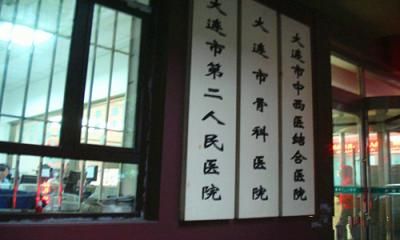 大连市第二人民医院
大连市骨科医院
大连市中西医结合医院